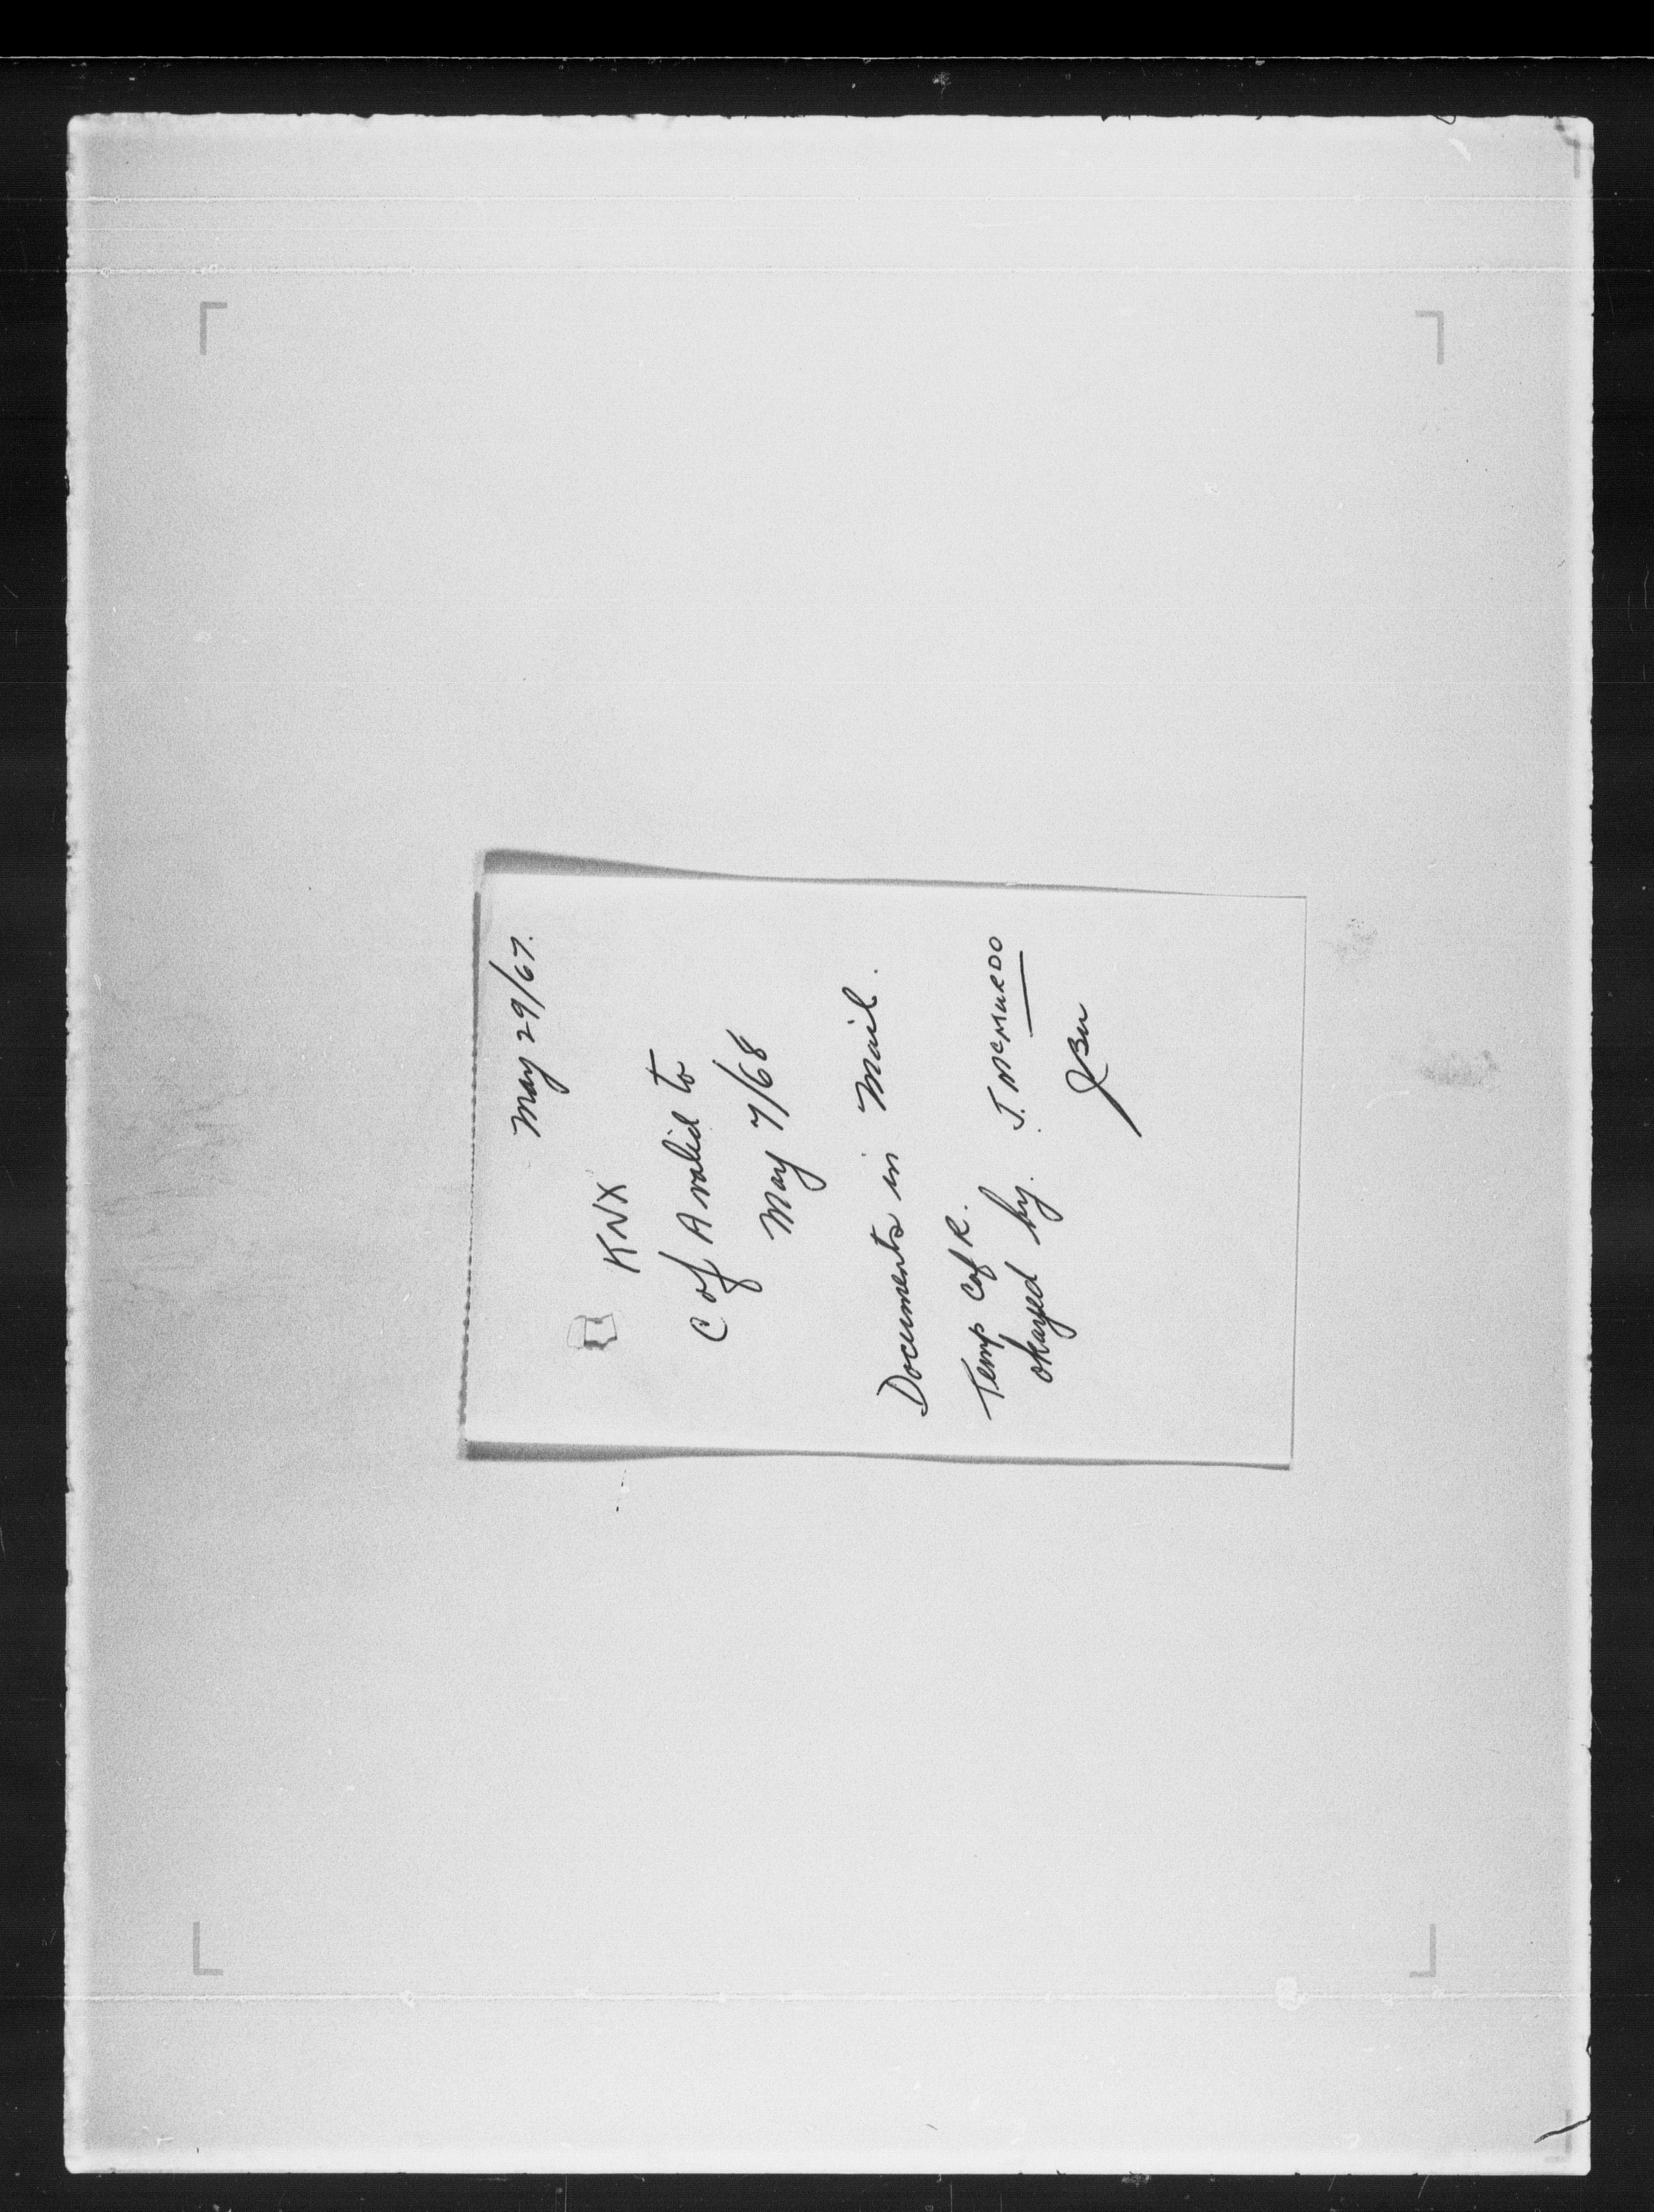 May 29/67.
KNX
C of A valid to
May 7/68
Documents in Mail.
Temp C of R.
okayed by. J. McMURDO